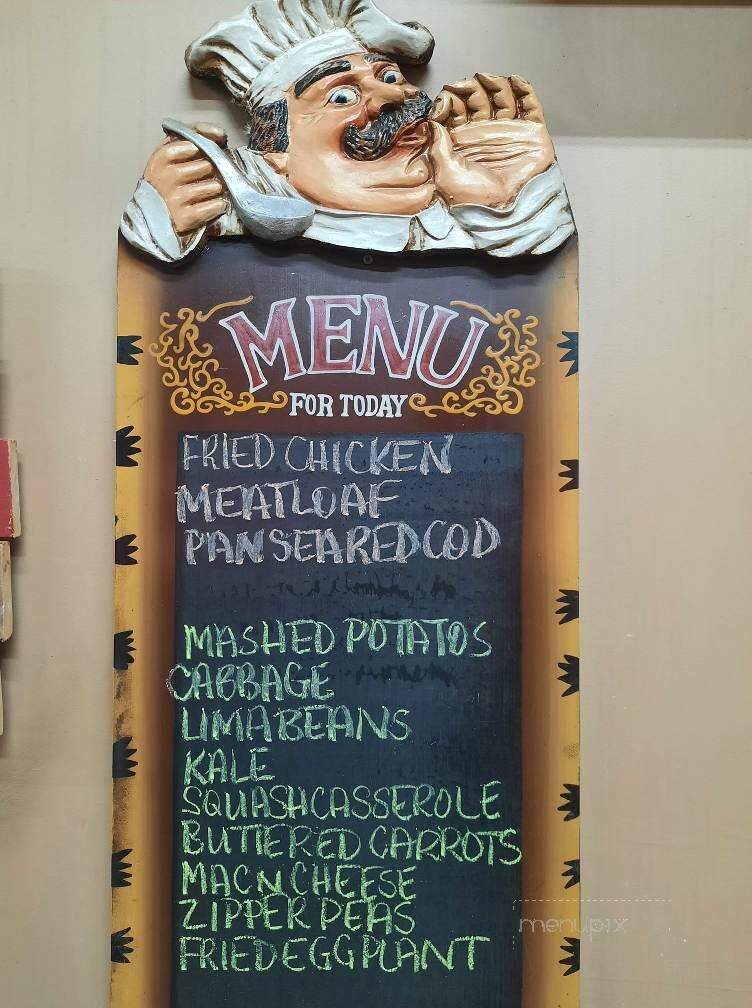 MENU
FOR TODAY
FRIED CHICKEN
MEATLOAF
PAN SEARED COD
MASHED POTATOS
CABBAGE
LIMA BEANS
KALE
SQUASH CASSEROLE
BUTTERED CARROTS
MAC N CHEESE
ZIPPER PEAS
FRIED EGGPLANT
menupix